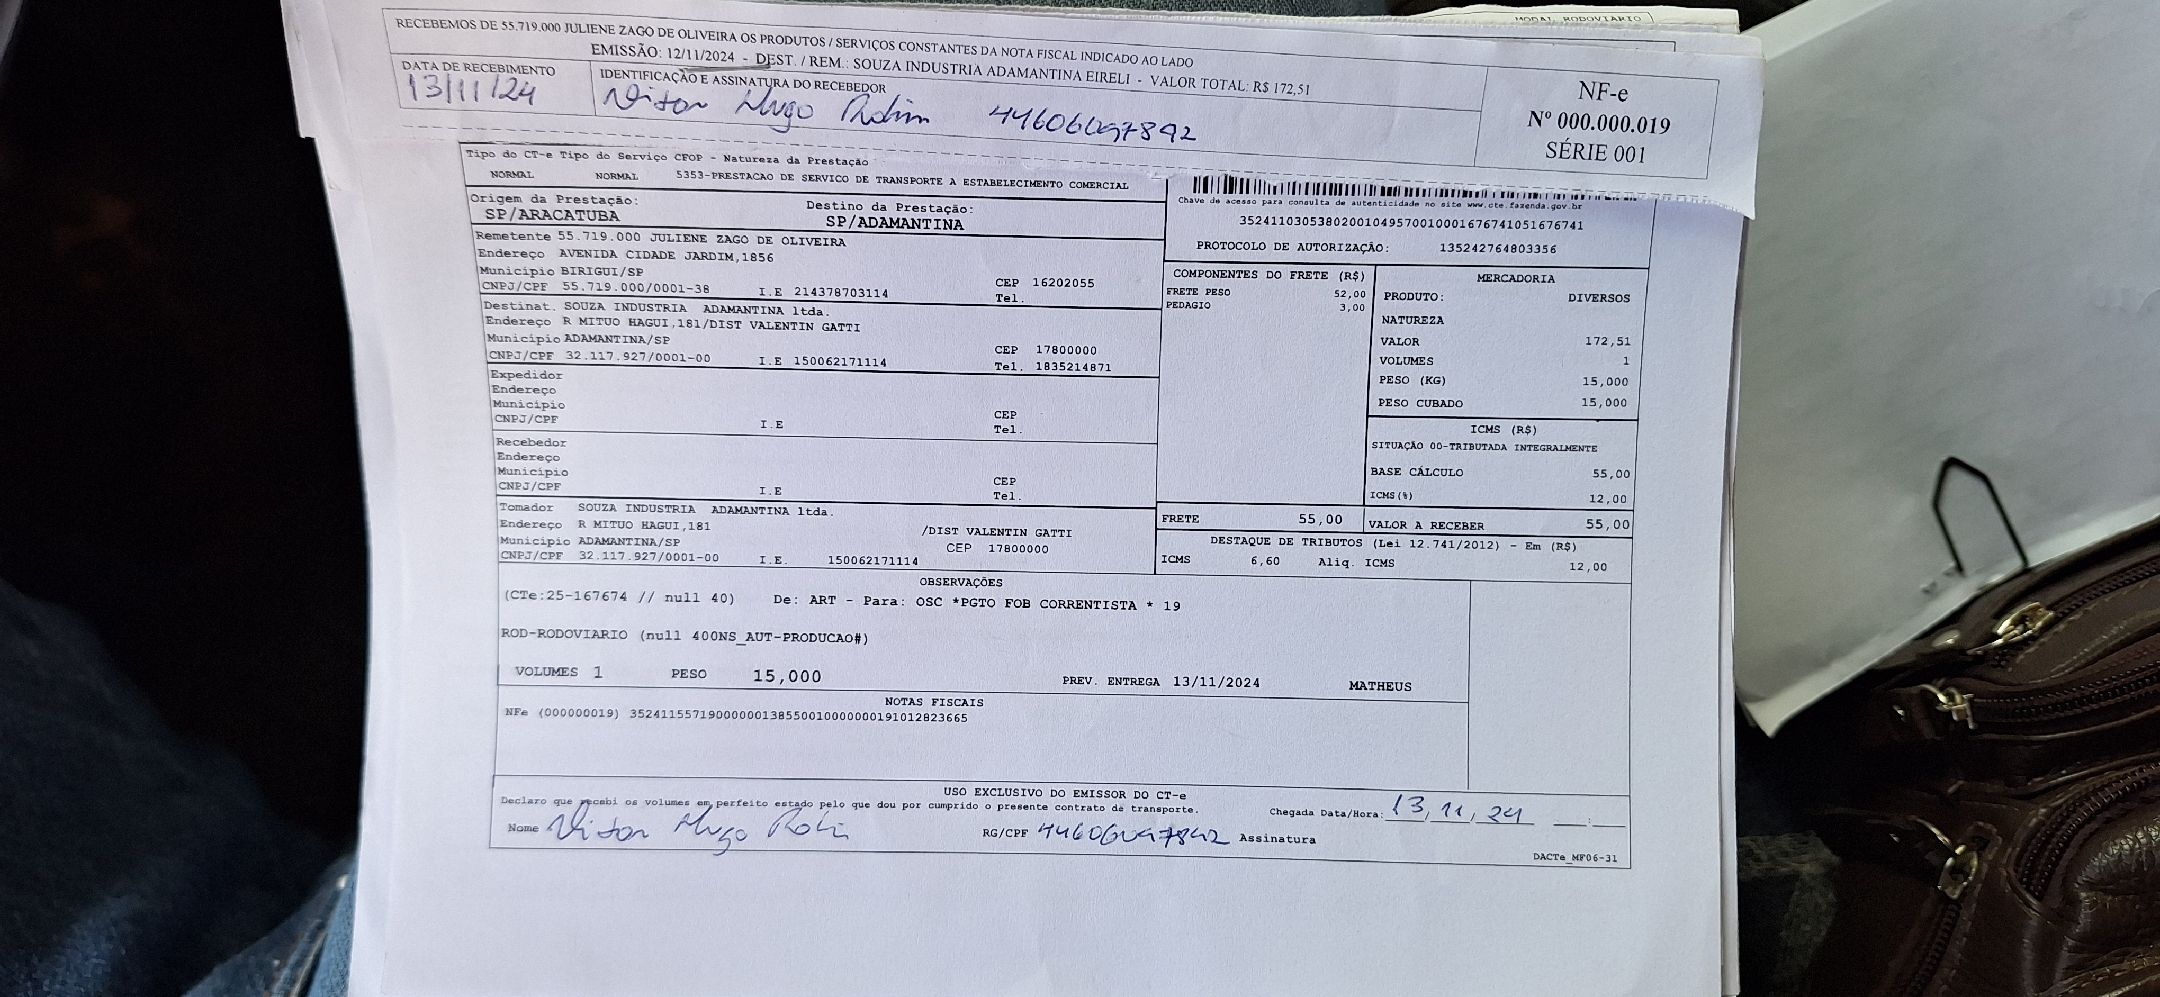 MODAL RODOVIARIO
RECEBEMOS DE 55.719.000 JULIENE ZAGO DE OLIVEIRA OS PRODUTOS / SERVIÇOS CONSTANTES DA NOTA FISCAL INDICADO AO LADO
EMISSÃO: 12/11/2024 - DEST. / REM.: SOUZA INDUSTRIA ADAMANTINA EIRELI - VALOR TOTAL: R$ 172,51
DATA DE RECEBIMENTO
13/11/24
IDENTIFICAÇÃO E ASSINATURA DO RECEBEDOR
Vitor Hugo Rolim 44606097892
NF-e
Nº 000.000.019
SÉRIE 001
Tipo do CT-e Tipo do Serviço CFOP - Natureza da Prestação
NORMAL NORMAL 5353-PRESTACAO DE SERVICO DE TRANSPORTE A ESTABELECIMENTO COMERCIAL
Origem da Prestação: Destino da Prestação:
SP/ARACATUBA SP/ADAMANTINA
Chave de acesso para consulta de autenticidade no site www.cte.fazenda.gov.br
35241103053802001049570010001676741051676741
PROTOCOLO DE AUTORIZAÇÃO: 135242764803356
Remetente 55.719.000 JULIENE ZAGO DE OLIVEIRA
Endereço AVENIDA CIDADE JARDIM,1856
Município BIRIGUI/SP CEP 16202055
CNPJ/CPF 55.719.000/0001-38 I.E 214378703114 Tel.
Destinat. SOUZA INDUSTRIA ADAMANTINA ltda.
Endereço R MITUO HAGUI,181/DIST VALENTIN GATTI
Município ADAMANTINA/SP CEP 17800000
CNPJ/CPF 32.117.927/0001-00 I.E 150062171114 Tel. 1835214871
Expedidor
Endereço
Município CEP
CNPJ/CPF I.E Tel.
Recebedor
Endereço
Município CEP
CNPJ/CPF I.E Tel.
Tomador SOUZA INDUSTRIA ADAMANTINA ltda.
Endereço R MITUO HAGUI,181 /DIST VALENTIN GATTI
Município ADAMANTINA/SP CEP 17800000
CNPJ/CPF 32.117.927/0001-00 I.E. 150062171114
COMPONENTES DO FRETE (R$)
FRETE PESO 52,00
PEDAGIO 3,00
MERCADORIA
PRODUTO: DIVERSOS
NATUREZA
VALOR 172,51
VOLUMES 1
PESO (KG) 15,000
PESO CUBADO 15,000
ICMS (R$)
SITUAÇÃO 00-TRIBUTADA INTEGRALMENTE
BASE CÁLCULO 55,00
ICMS(%) 12,00
FRETE 55,00 VALOR A RECEBER 55,00
DESTAQUE DE TRIBUTOS (Lei 12.741/2012) - Em (R$)
ICMS 6,60 Aliq. ICMS 12,00
OBSERVAÇÕES
(CTe:25-167674 // null 40) De: ART - Para: OSC *PGTO FOB CORRENTISTA * 19
ROD-RODOVIARIO (null 400NS_AUT-PRODUCAO#)
VOLUMES 1 PESO 15,000 PREV. ENTREGA 13/11/2024 MATHEUS
NOTAS FISCAIS
NFe (000000019) 35241155719000000138550010000000191012823665
USO EXCLUSIVO DO EMISSOR DO CT-e
Declaro que recebi os volumes em perfeito estado pelo que dou por cumprido o presente contrato de transporte. Chegada Data/Hora: 13, 11, 24 __:__
Nome Vitor Hugo Rolim RG/CPF 44606097892 Assinatura
DACTe_MF06-31